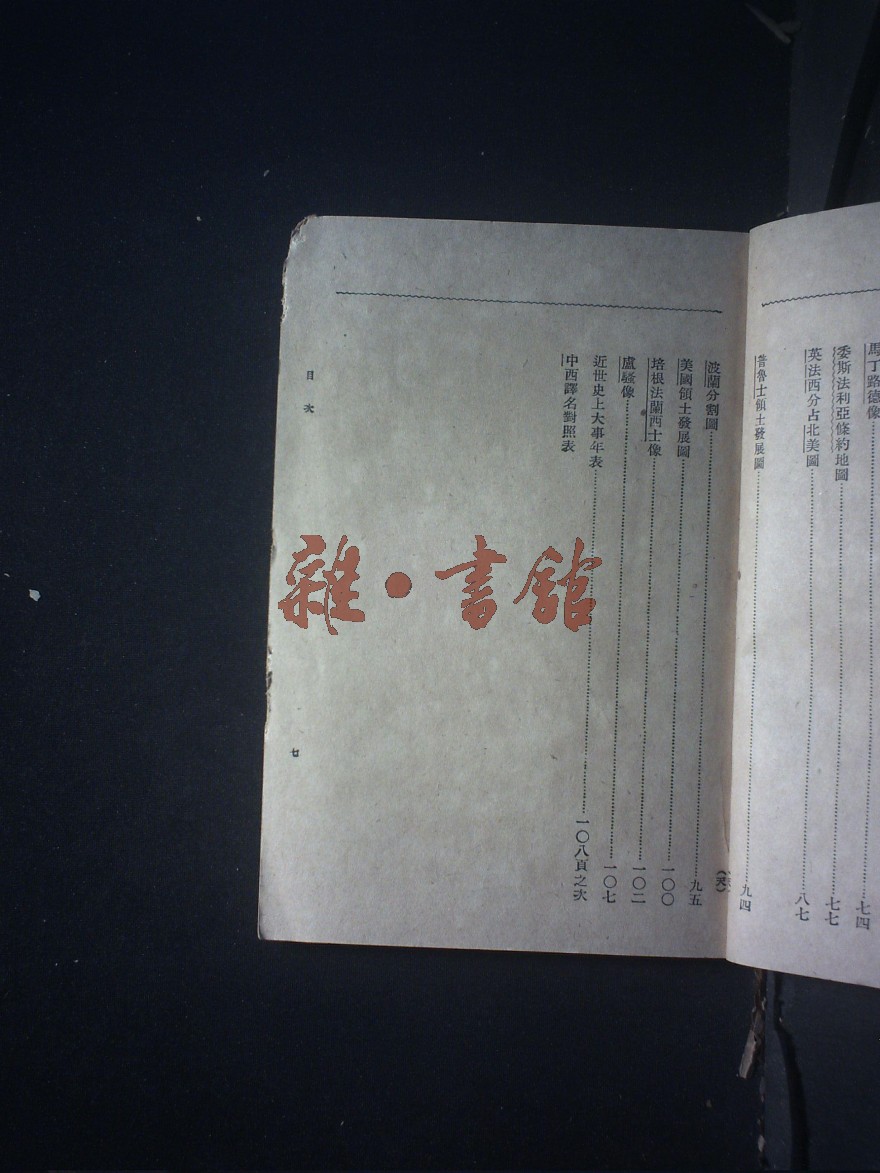 馬丁路德像……七四
委斯法利亞條約地圖……七七
英法西分占北美圖……八七
普魯士領土發展圖……九四
波蘭分割圖……九五
美國領土發展圖……一〇〇
培根法蘭西士像……一〇二
盧騷像……一〇七
近世史上大事年表……一〇八頁之次
中西譯名對照表
目次
雜·書館